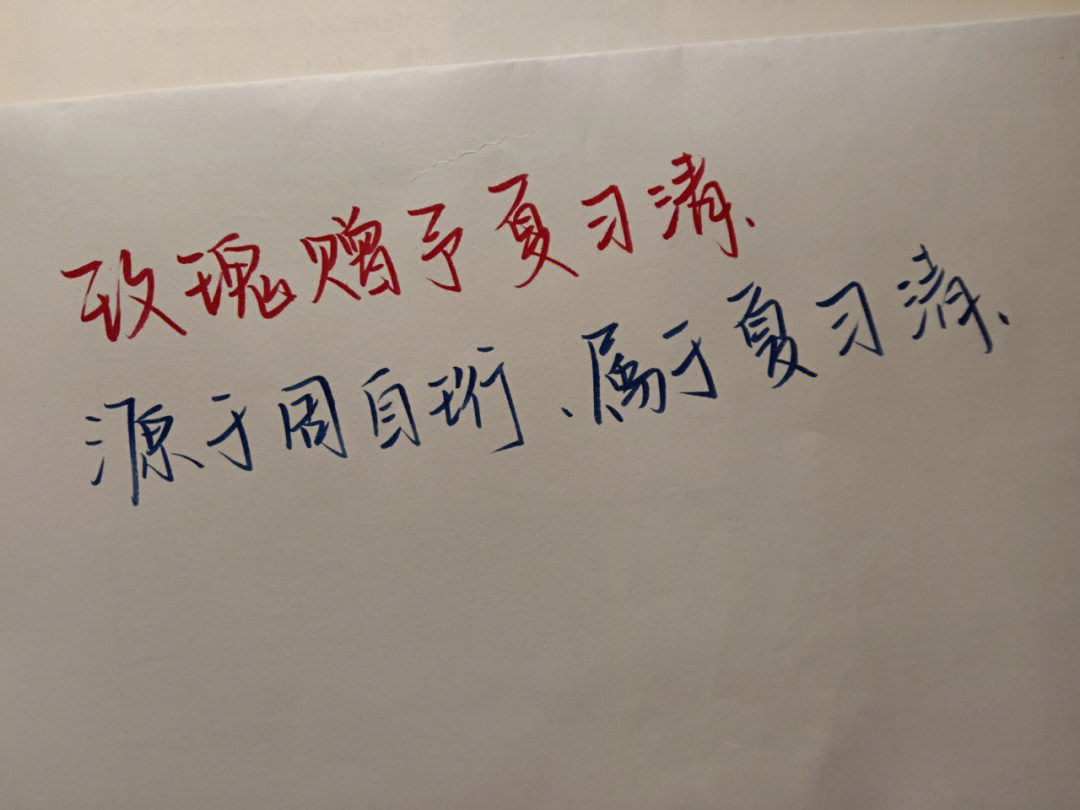 玫瑰赠予夏习清、
源于周自珩、属于夏习清、